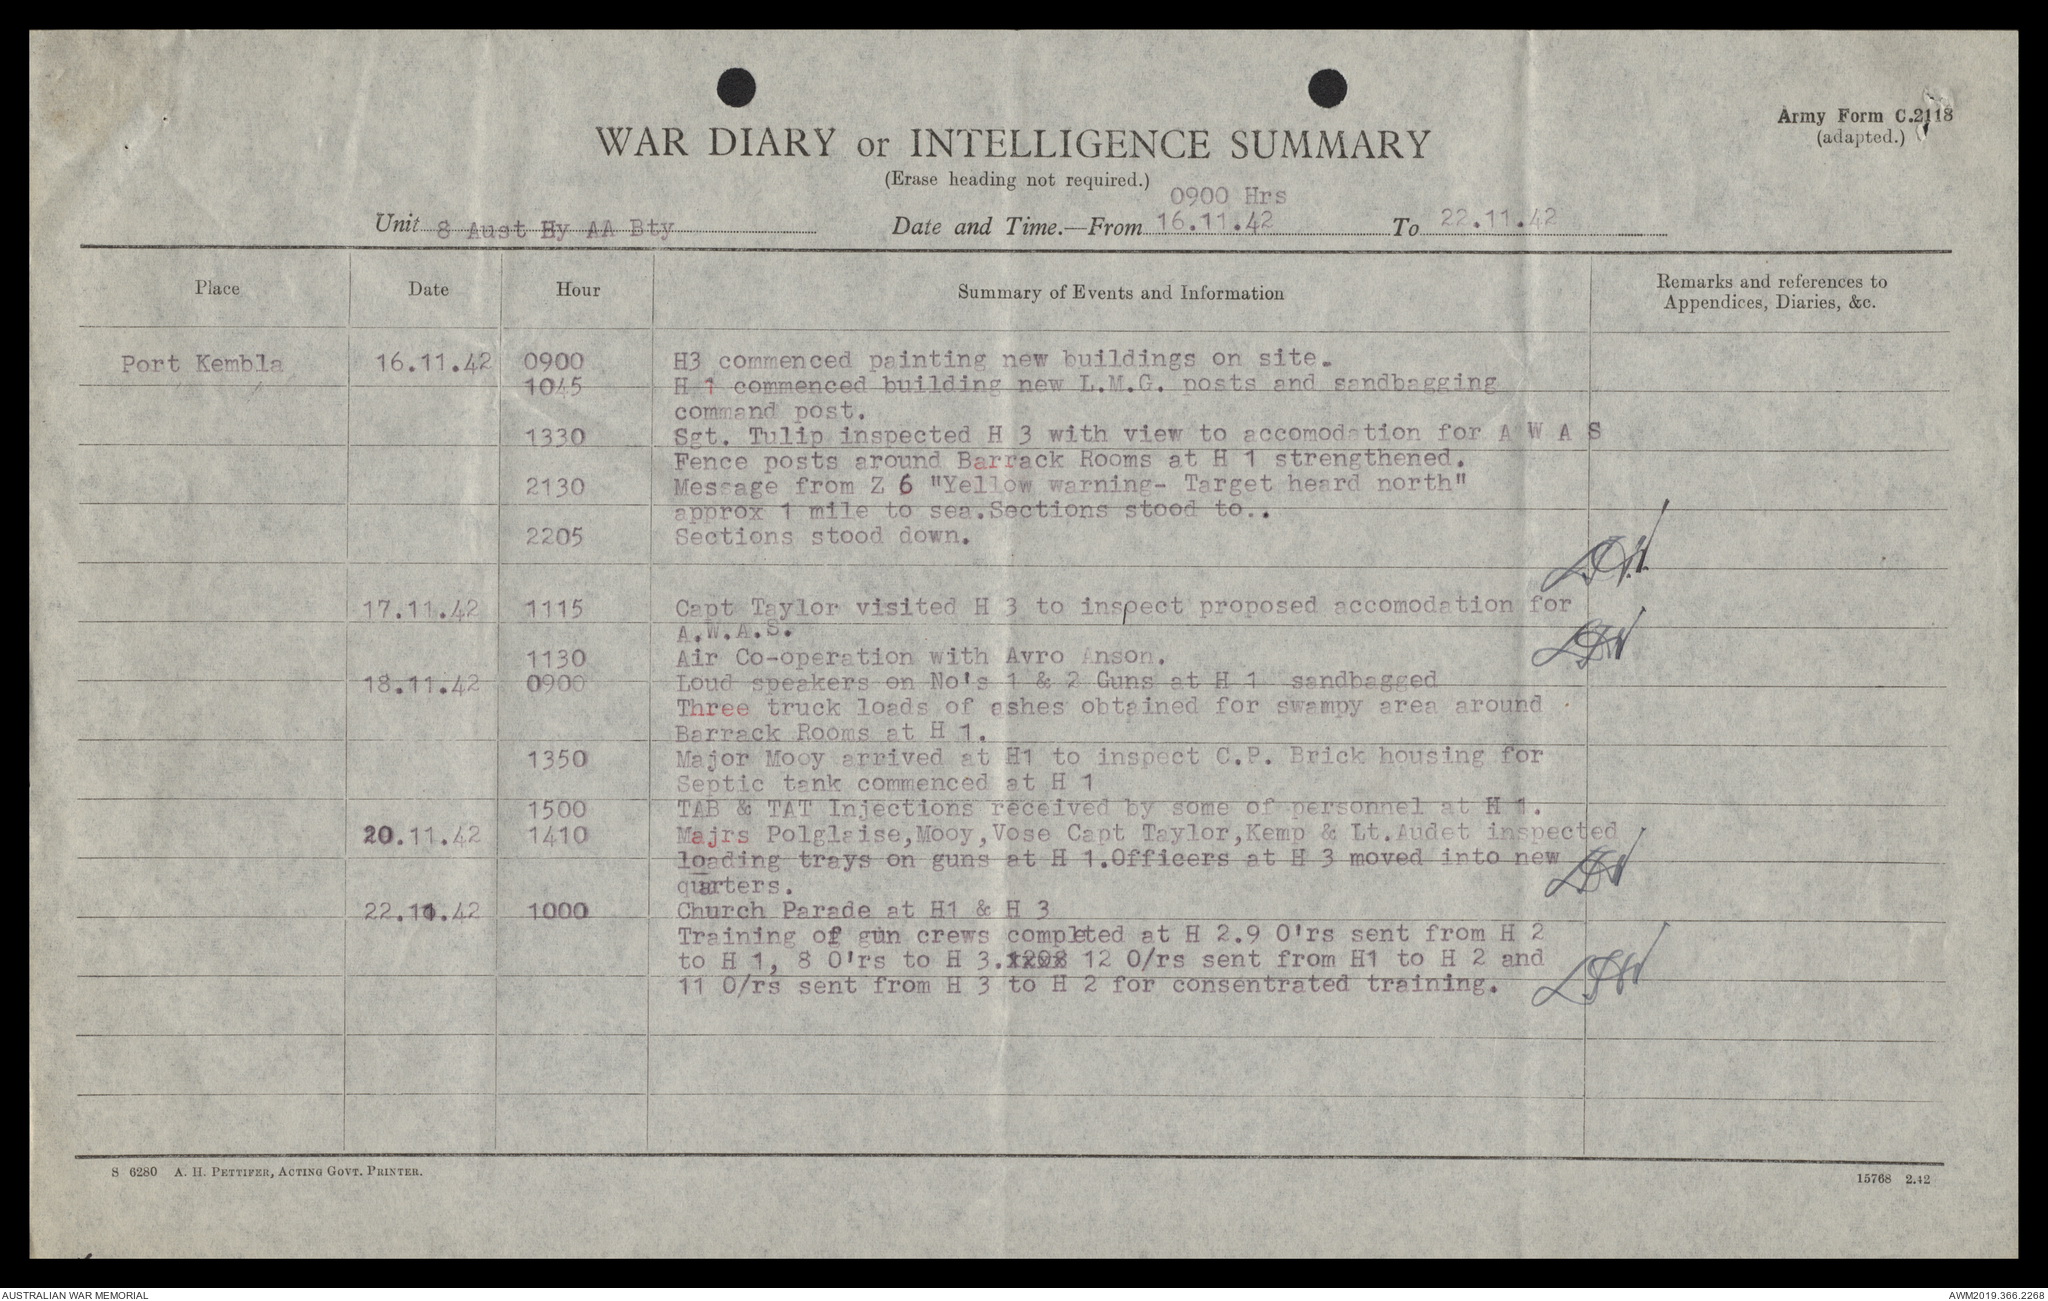 Army Form C.2118
(adapted.)
WAR DIARY or INTELLIGENCE SUMMARY
(Erase heading not required.)
0900 Hrs
Unit 8 Aust Hy AA Bty Date and Time.—From 16.11.42 To 22.11.42
Place Date Hour Summary of Events and Information Remarks and references to
Appendices, Diaries, &c.
Port Kembla 16.11.42 0900 H3 commenced painting new buildings on site.
1045 H 1 commenced building new L.M.G. posts and sandbagging
command post.
1330 Sgt. Tulip inspected H 3 with view to accomodation for A W A S
Fence posts around Barrack Rooms at H 1 strengthened.
2130 Message from Z 6 "Yellow warning- Target heard north"
approx 1 mile to sea.Sections stood to..
2205 Sections stood down.
17.11.42 1115 Capt Taylor visited H 3 to inspect proposed accomodation for
A.W.A.S.
1130 Air Co-operation with Avro Anson.
18.11.42 0900 Loud speakers on No's 1 & 2 Guns at H 1 sandbagged
Three truck loads of ashes obtained for swampy area around
Barrack Rooms at H 1.
1350 Major Mooy arrived at H1 to inspect C.P. Brick housing for
Septic tank commenced at H 1
1500 TAB & TAT Injections received by some of personnel at H 1.
20.11.42 1410 Majrs Polglaise,Mooy,Vose Capt Taylor,Kemp & Lt.Audet inspected
loading trays on guns at H 1.Officers at H 3 moved into new
quarters.
22.11.42 1000 Church Parade at H1 & H 3
Training of gun crews completed at H 2.9 O'rs sent from H 2
to H 1, 8 O'rs to H 3. 12 O/rs sent from H1 to H 2 and
11 O/rs sent from H 3 to H 2 for consentrated training.
S 6280 A. H. PETTIFER, ACTING GOVT. PRINTER.
15768 2.42
AUSTRALIAN WAR MEMORIAL
AWM2019.366.2268